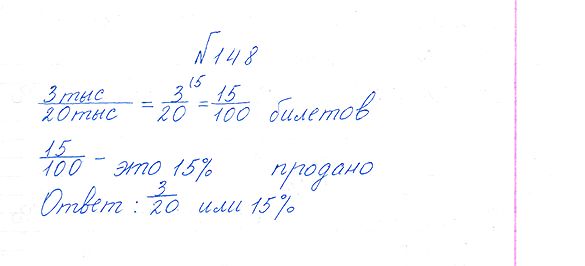 №148
3 тыс / 20 тыс = 3 15 / 20 = 15 / 100 билетов
15 / 100 - это 15% продано
Ответ: 3 / 20 или 15%